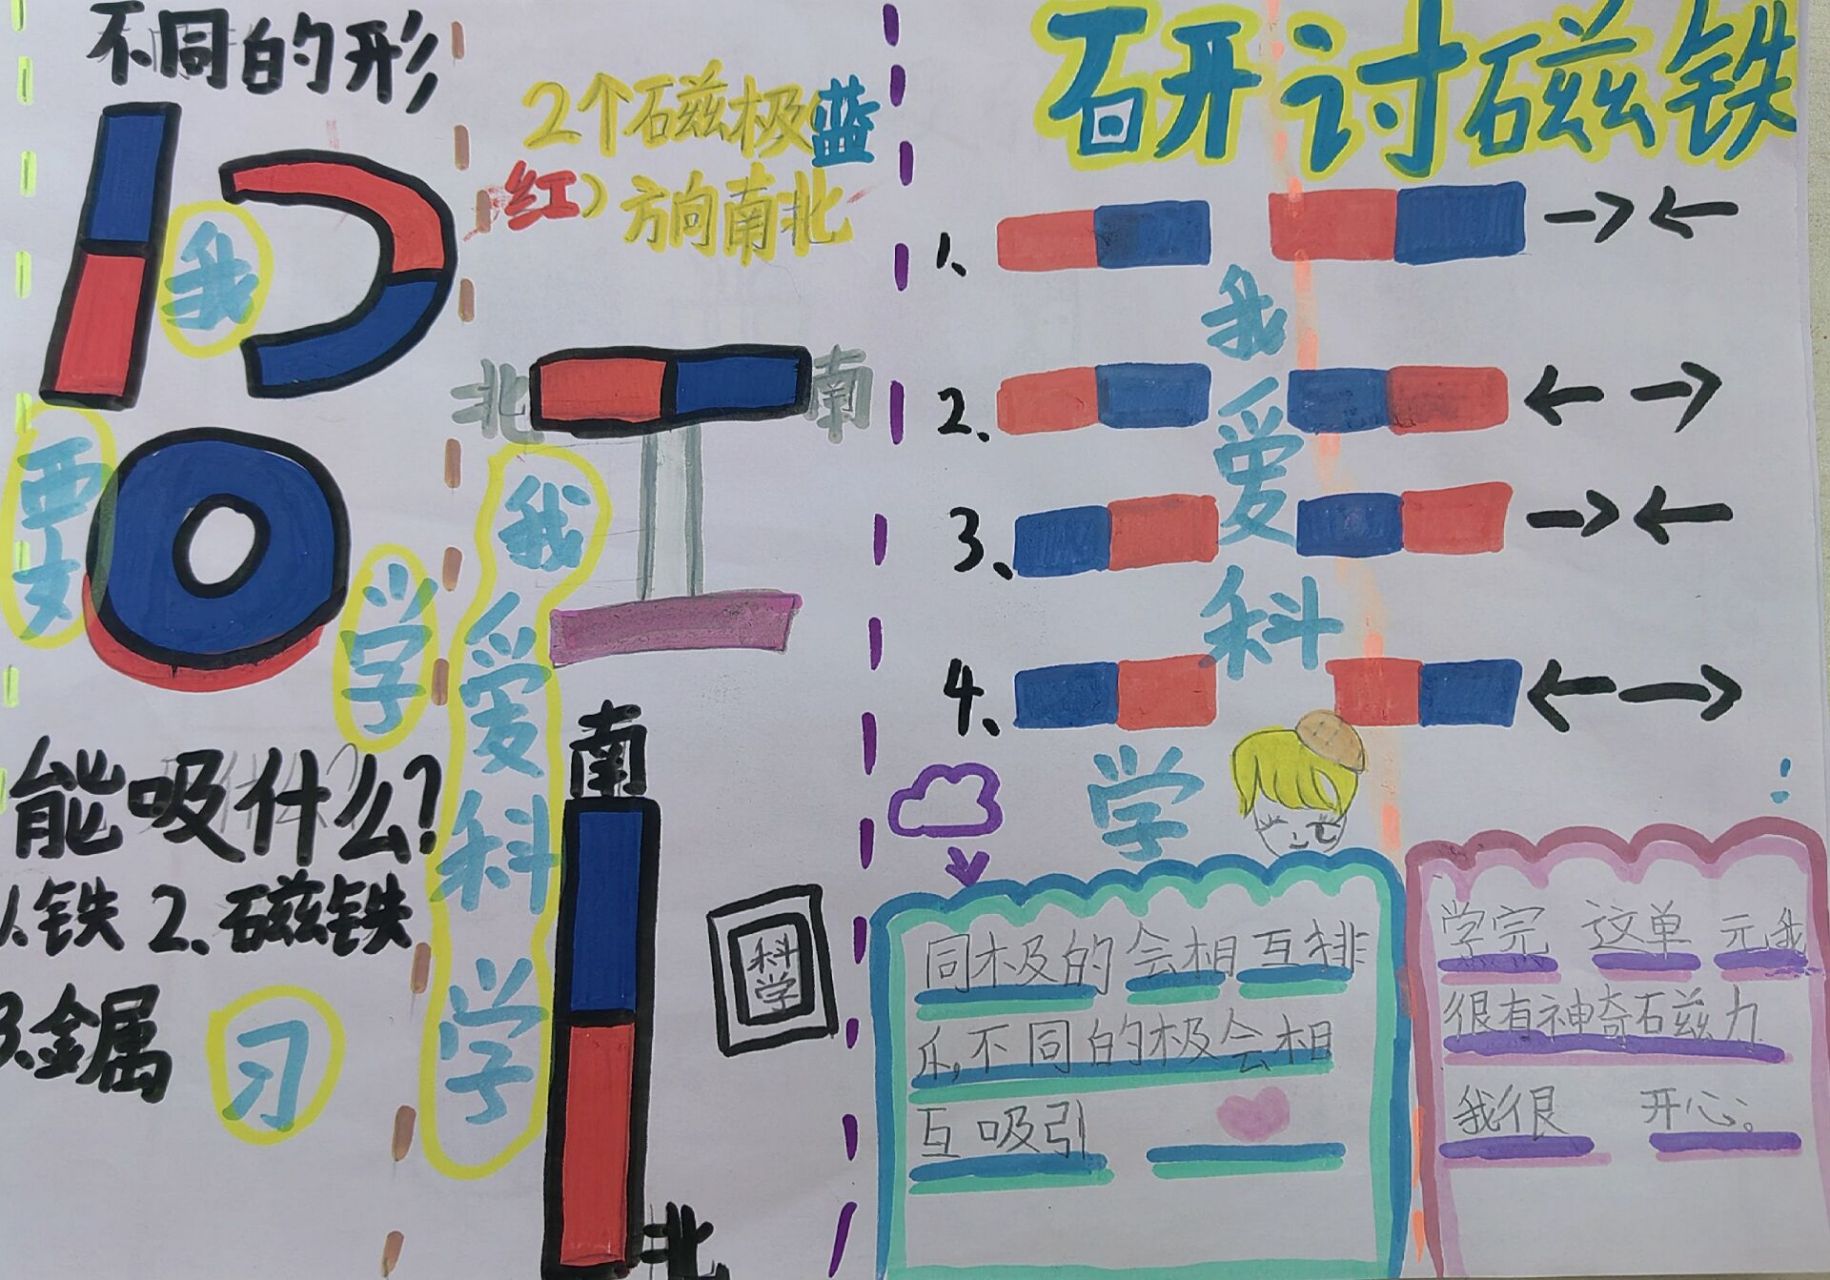 不同的形
我
要
学
习
能吸什么?
1.铁 2.磁铁
3.金属
2个磁极蓝
红)方向南北
北
南
我爱科学
南
北
科学
研讨磁铁
1.
2.
3.
4.
我爱科学!
同极的会相互排
斥,不同的极会相
互吸引
学完这单元我
很有神奇磁力
我很开心。